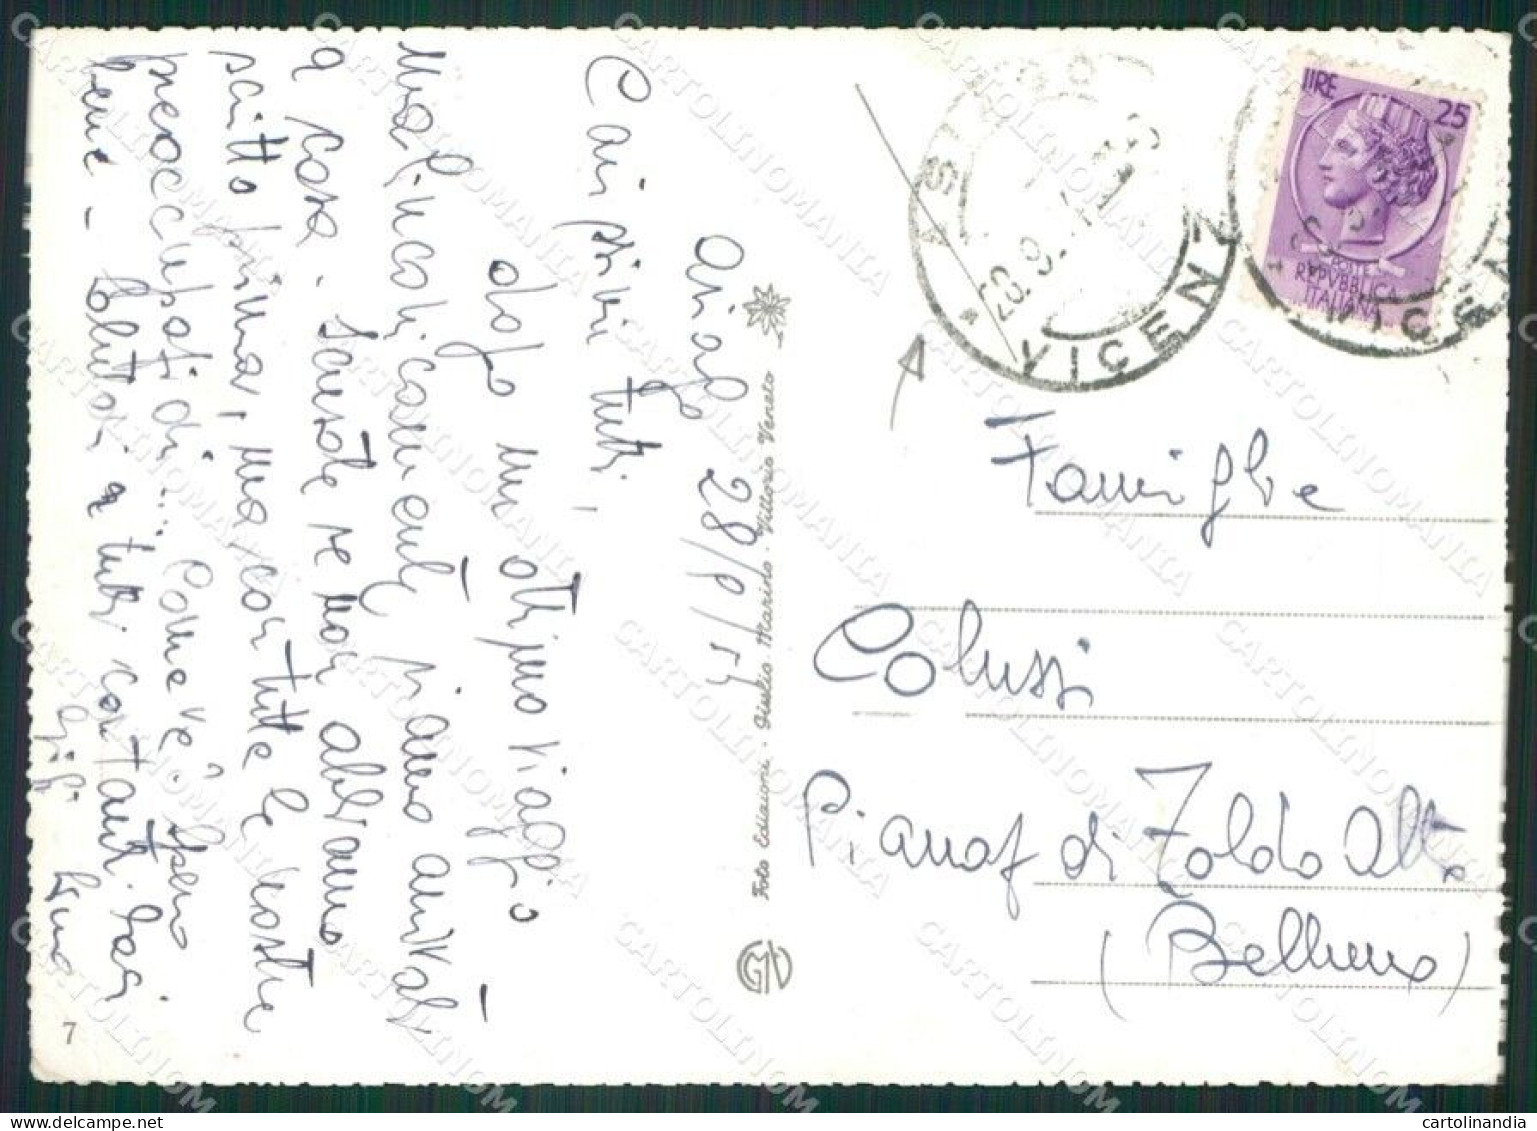 Asiago 28/9/54
Cari zii e tutti,
dopo un ottimo viaggio
malinconicamente siamo arrivati
a casa. Scusate se non abbiamo
scritto prima, ma con tutte le nostre
preoccupazioni... Come va? Spero
bene - Saluti a tutti
Luigi
Foto Edizioni - Giulio Marino - Vittorio Veneto
GMV
7
ASIAGO
VICENZA
LIRE 25
POSTE
REPVBBLICA
ITALIANA
VICENZA
Famiglia
Colussi
Pianaz di Zoldo Alto
(Belluno)
CARTOLINOMANIA
cartolinandia